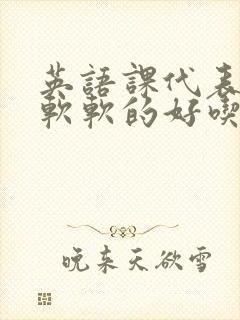 英語課代表
軟軟的好喫
晚来天欲雪